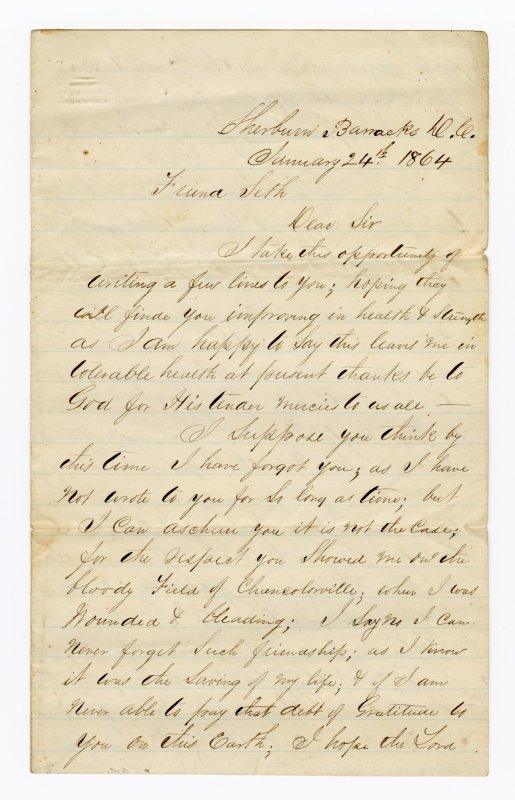 Sherburn Barracks D.C.
January 24th 1864
Friend Seth
Dear Sir
I take this opportunity of
writing a few lines to you; hoping they
will finde you improving in health & strength
as I am happy to say this leaves me in
tolerable health at present thanks be to
God for His tender mercies to us all —
I suppose you think by
this time I have forgot you; as I have
not wrote to you for so long as time; but
I can aschure you it is not the case;
for the respect you showed me on the
bloody Field of Chancolorville; when I was
Wounded & bleading; I say no I can
never forget such friendship; as I know
it was the saving of my life; & if I am
never able to pay that debt of Gratitude to
you on this Earth; I hope the Lord